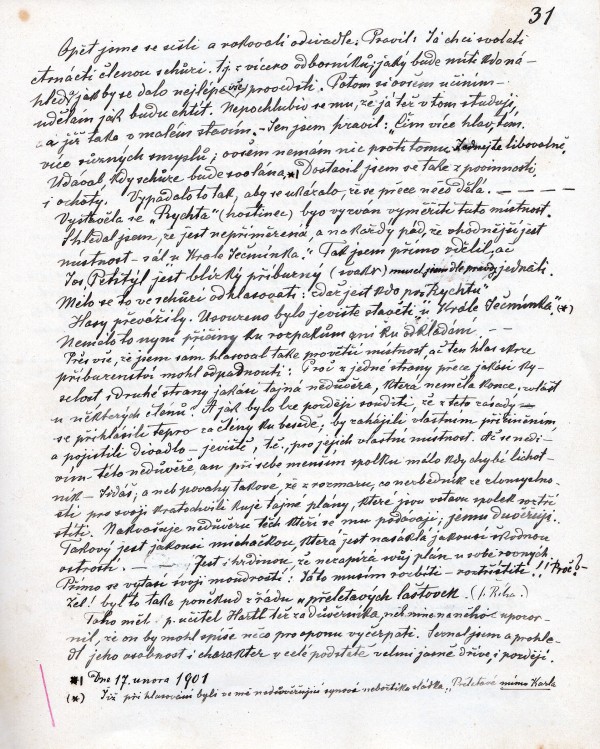 31
Opět jsme se sešli a rokovali o divadle: Pravil: Já chci svolati
ctrnácti členou schůzi. tj. z vícero odborníků; jaký bude míti kdo ná-
hled? jak by se dalo nejlépe vše provésti. Potom si ovšem učiním-
udělám jak budu chtít. Nepochlubiv se mu, že já též v tom studuji,
a již také v malém stavím. - Jen jsem pravil: Čím více hlav, tím
více různých smyslů; ovšem nemám nic proti tomu. Jednejte libovolně.
Udával kdy schůze bude svolána, *) Dostavil jsem se také z povinnosti
i ochoty. Vypadalo to tak, aby se ukázalo, že se přece něco děla. — — —
Vystavěla se „Rychta" (hostinec) byv vyzván vyměřiti tuto místnost.
Shledal jsem, že jest nepřiměřená, a na každý pád, že vhodnější jest
místnost - sál u Krále Ječmínka! Tak jsem přímo sdělil, ač
Jos Petitýl jest blízký příbuzný (svakr) musel jsem dle pravdy jednáti.
Mělo se to ve schůzi odhlasovati: zdaž jest kdo pro „Rychtu"
Hasy převážily. Usouzeno bylo jeviště stavěti „u Krále Ječmínka" (*)
Nemělo to nyní příčiny ku rozpakům ani ku odkladům —
Přes vše, že jsem sam hlasoval také pro větší místnost, ač ten hlas skrze
příbuzenství mohl odpadnouti: Proč z jedné strany přece jakási ky-
selost i druhé strany jakási tajná nedůvěra, která neměla konce, zvlášť
u některých členů? A jak bylo lze později souditi, že z této zásady —
se přihlásili teprv za členy ku besedě, by zahájili vlastním přičiněním,
a pojistili divadlo - jeviště, t.č. „pro jejich vlastní místnost. Ač se nedi-
vím této nedůvěře, an při sebe menším spolku málo kdy chybí lichot-
ník - Jidáš; a neb povahy takové, že z rozmaru, co nezbedník ze zlomyslno-
sti pro svoji kratochvíli kuje tajné plány, které jsou vstavu spolek roztří-
štiti. Nakvašuje nedůvěru těch kteří se mu podávají, jemu důvěřují.
Takový jest jakousi míchačkou, která jest nasáklá jakousi škodnou
ostrostí. — Jest i hrdinou, že nezapírá svůj plán u sobě rovných.
Přímo se vytasí svojí moudrostí: Toto musím rozbíti - roztříštiti!! Proč?-
Žel! byl to také poněkud z řádu „přeletavých laštovek. (J. Říha.)
Toho měl p. učitel Hartl též za důvěrníka, něb mne na něho upozor-
nil, že on by mohl spíše něco pro oponu vyčerpati. Seznal jsem a prohlí-
dl jeho osobnost i charakter v celé podstatě velmi jasně dříve, i později.
*) Dne 17. února 1901
(*) Již při hlasování byli ze mě nedůvěřující synové nebožtíka sládka „Přeletavé mimo Karla